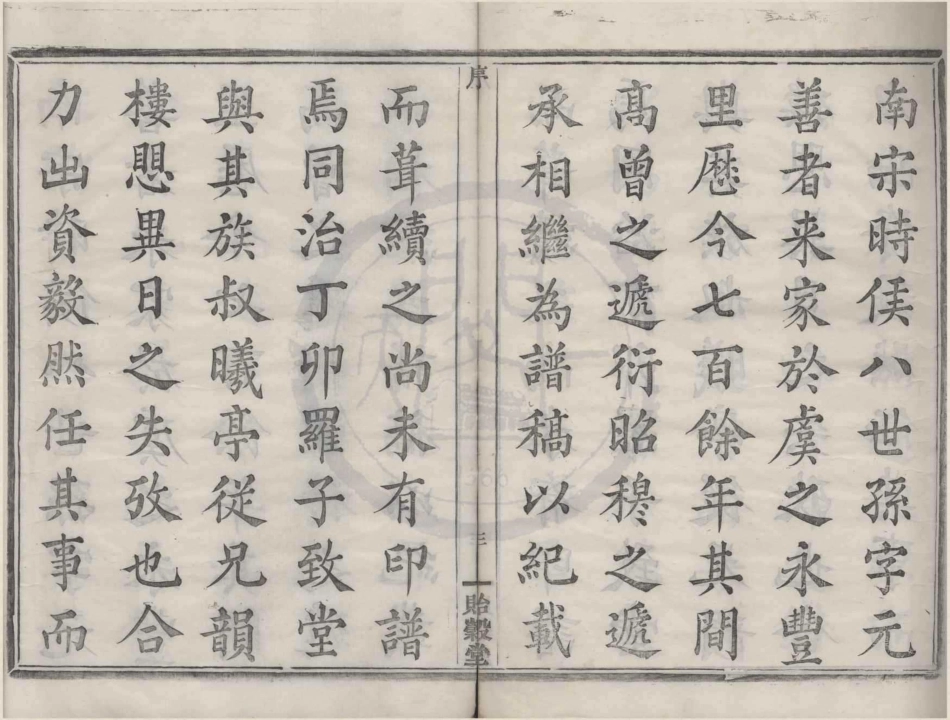 南宋時侯八世孫字元
善者来家於虞之永豐
里歷今七百餘年其間
高曾之遞衍昭穆之遞
承相繼為譜稿以紀載
序
三
貽穀堂
而葺續之尚未有印譜
焉同治丁卯羅子致堂
與其族叔曦亭従兄韻
樓思異日之失攷也合
力出資毅然任其事而